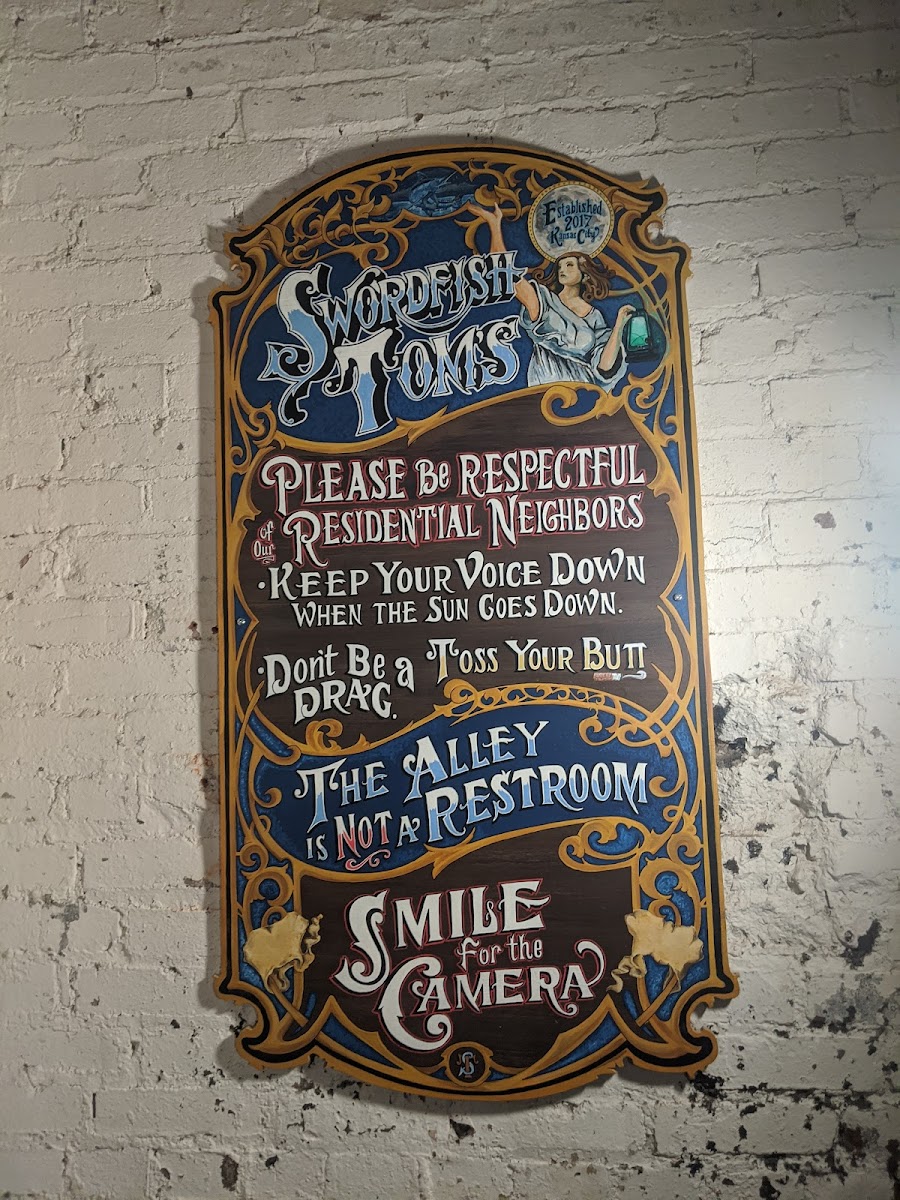 Established
2017
Kansas City
SWORDFISH
TOM'S
PLEASE Be RESPECTFUL
of Our RESIDENTIAL NEIGHBORS
·KEEP YOUR VOICE DOWN
WHEN THE SUN GOES DOWN.
·Don't Be a DRAG. TOSS YOUR BUTT
THE ALLEY
IS NOT A RESTROOM
SMILE
For the
CAMERA